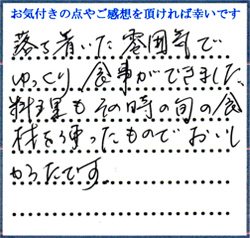 お気付きの点やご感想を頂ければ幸いです
落ち着いた雰囲気で
ゆっくり食事ができました。
料理もその時の旬の食
材を使ったものでおいし
かったです。